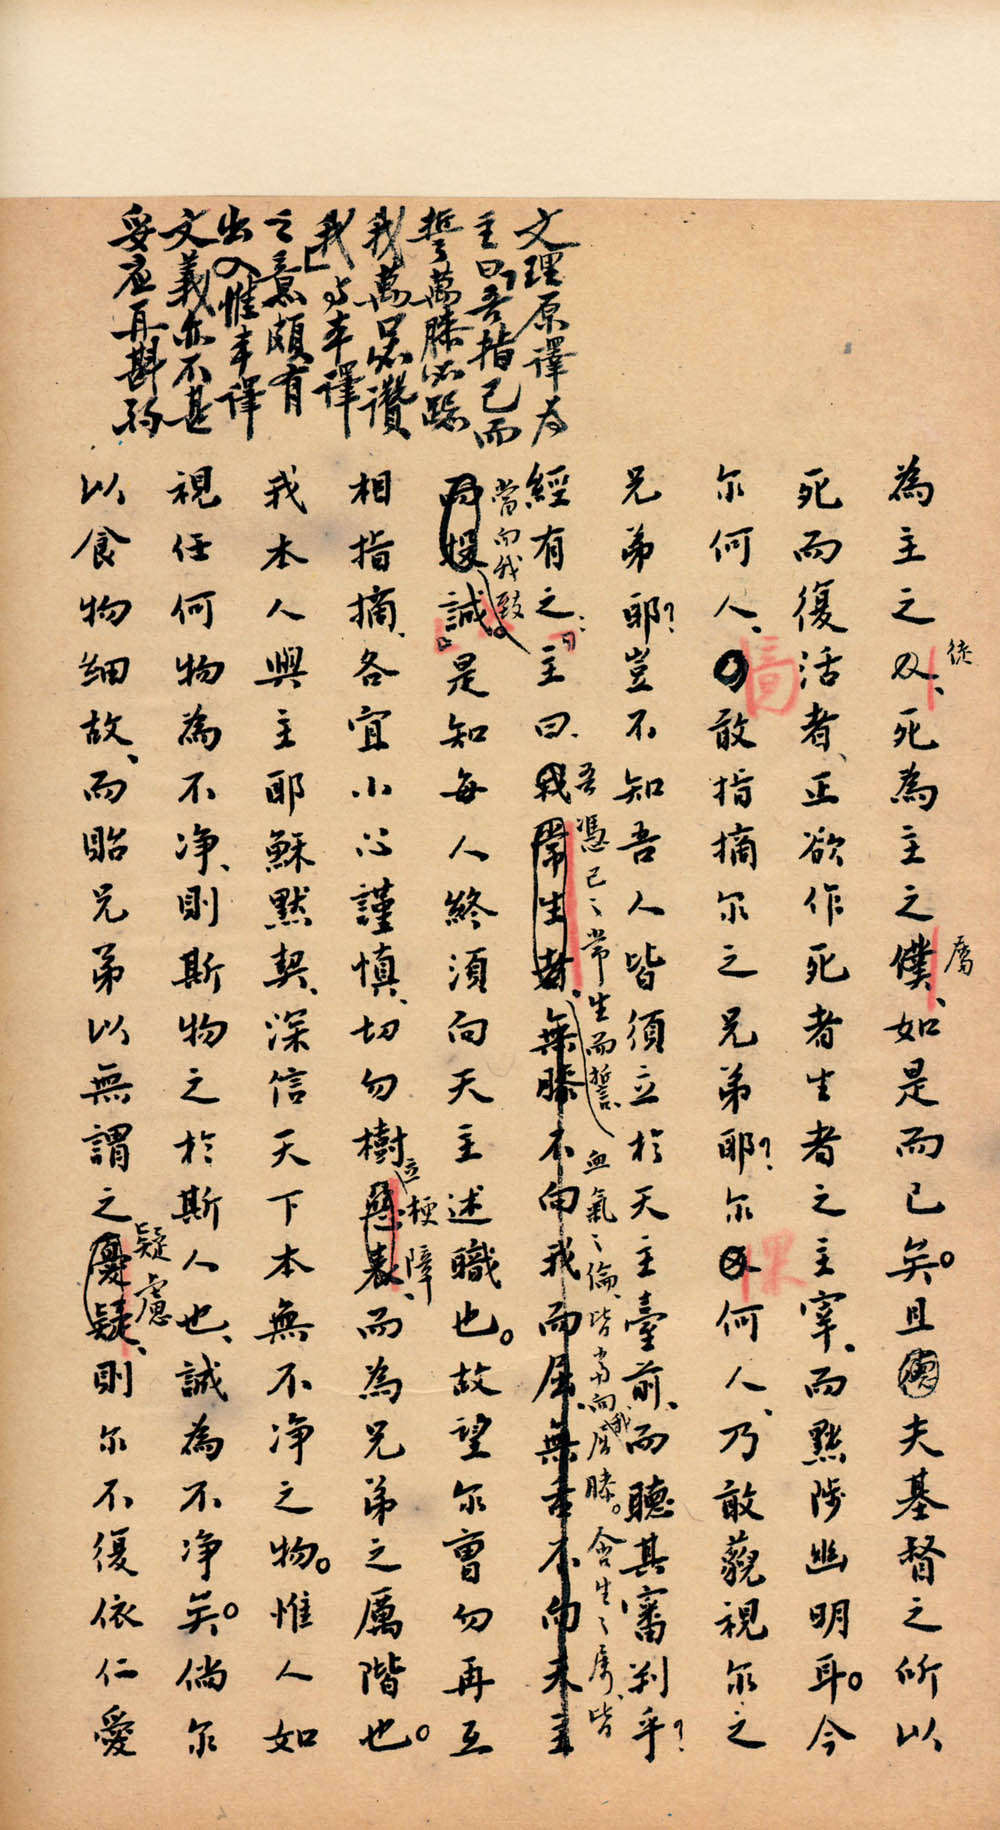 文理原譯為
主曰吾指己而
誓萬膝必跽
我萬口必讚
我与本譯
之意頗有
出入惟本譯
文義亦不甚
妥應再斟酌
為主之人、死為主之僕、如是而已矣。且夫基督之所以
徒
屬
死而復活者、正欲作死者生者之主宰、而黜陟幽明耳。今
尔何人、敢指摘尔之兄弟耶？尔又何人、乃敢藐視尔之
啻
果
兄弟耶？豈不知吾人皆須立於天主臺前、而聽其審判乎？
吾憑己之常生而誓、血氣之倫、皆當向我屈膝。含生之屬、皆
經有之：主曰、我常生者、無膝不向我而屈、無舌不向天主
當向我致
而投誠。是知每人終須向天主述職也。故望尔曹勿再互
相指摘、各宜小心謹慎、切勿樹惡表、而為兄弟之厲階也。
立梗障、
我本人與主耶穌默契、深信天下本無不净之物。惟人如
視任何物為不净、則斯物之於斯人也、誠為不净矣。倘尔
疑慮
以食物細故、而貽兄弟以無謂之憂疑、則尔不復依仁愛